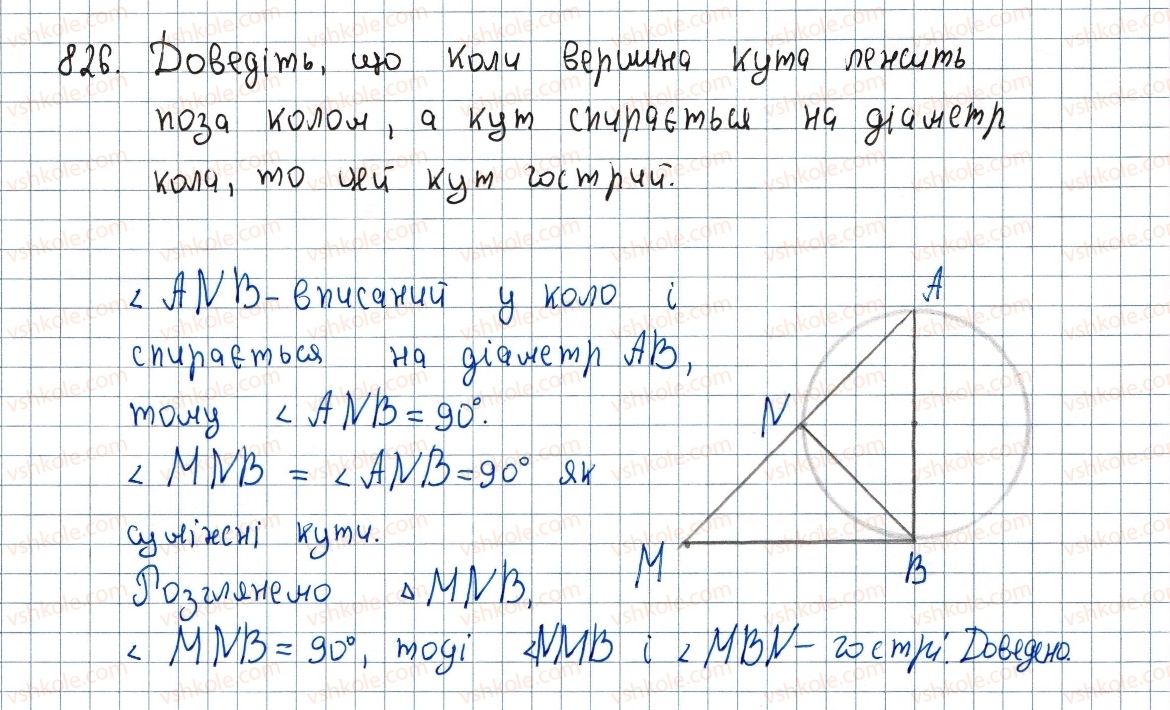 826. Доведіть, що коли вершина кута лежить
поза колом, а кут спирається на діаметр
кола, то цей кут гострий.
∠ ANB – вписаний у коло і
спирається на діаметр AB,
тому ∠ ANB = 90°.
∠ MNB = ∠ ANB = 90° як
суміжні кути.
Розглянемо △ MNB,
∠ MNB = 90°, тоді ∠NMB і ∠ MBN – гострі. Доведено.
A
N
M
B
vshkole.com